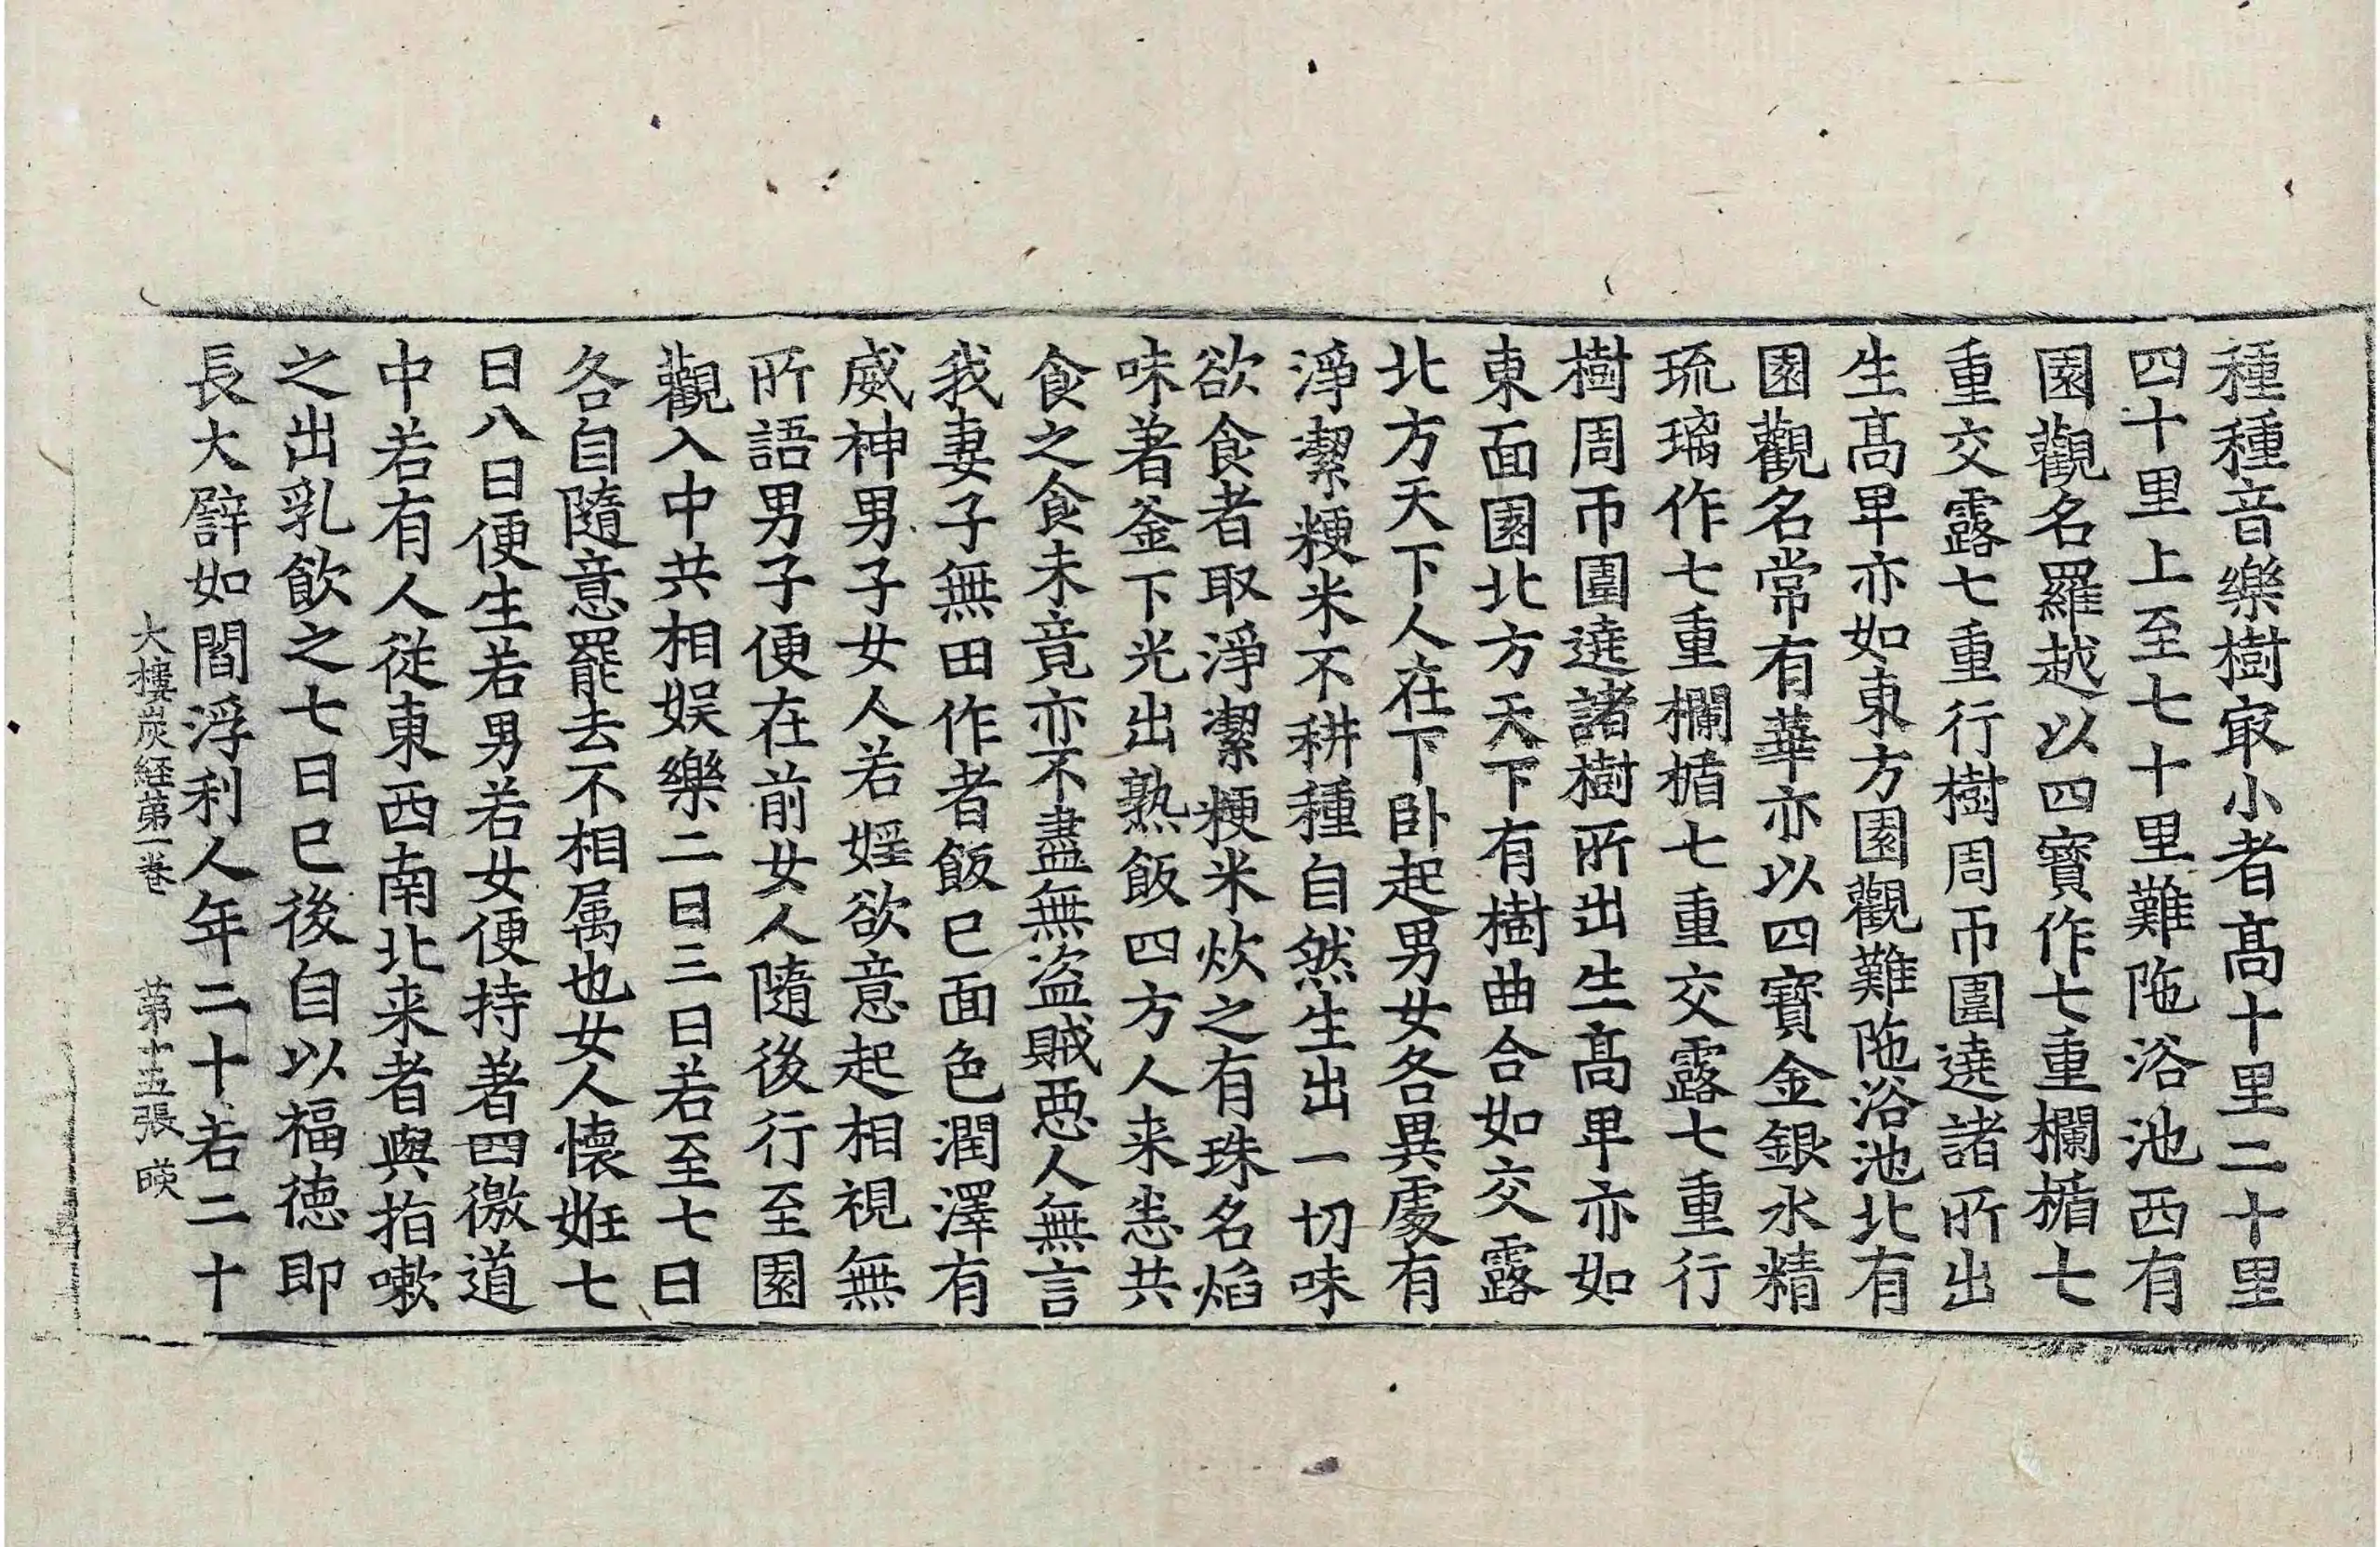 種種音樂樹㝡小者髙十里二十里
四十里上至七十里難陁浴池西有
園觀名羅越以四寶作七重欄楯七
重交露七重行樹周帀圍遶諸樹所出
生髙卑亦如東方園觀難陁浴池北有
園觀名常有華亦以四寶金銀水精
琉璃作七重欄楯七重交露七重行
樹周帀圍遶諸樹所出生髙卑亦如
東面園北方天下有樹曲合如交露
北方天下人在下卧起男女各異處有
淨潔粳米不耕種自然生出一切味
欲食者取淨潔粳米炊之有珠名焰
味著釜下光出熟飯四方人来恣共
食之食未竟亦不盡無盗賊惡人無言
我妻子無田作者飯已面色潤澤有
威神男子女人若婬欲意起相視無
所語男子便在前女人隨後行至園
觀入中共相娱樂二日三日若至七日
各自隨意罷去不相属也女人懷姙七
日八日便生若男若女便持著四徼道
中若有人従東西南北来者與指嗽
之出乳飲之七日已後自以福徳即
長大辟如閻浮利人年二十若二十
大樓炭経第一巻　第十五張　暎